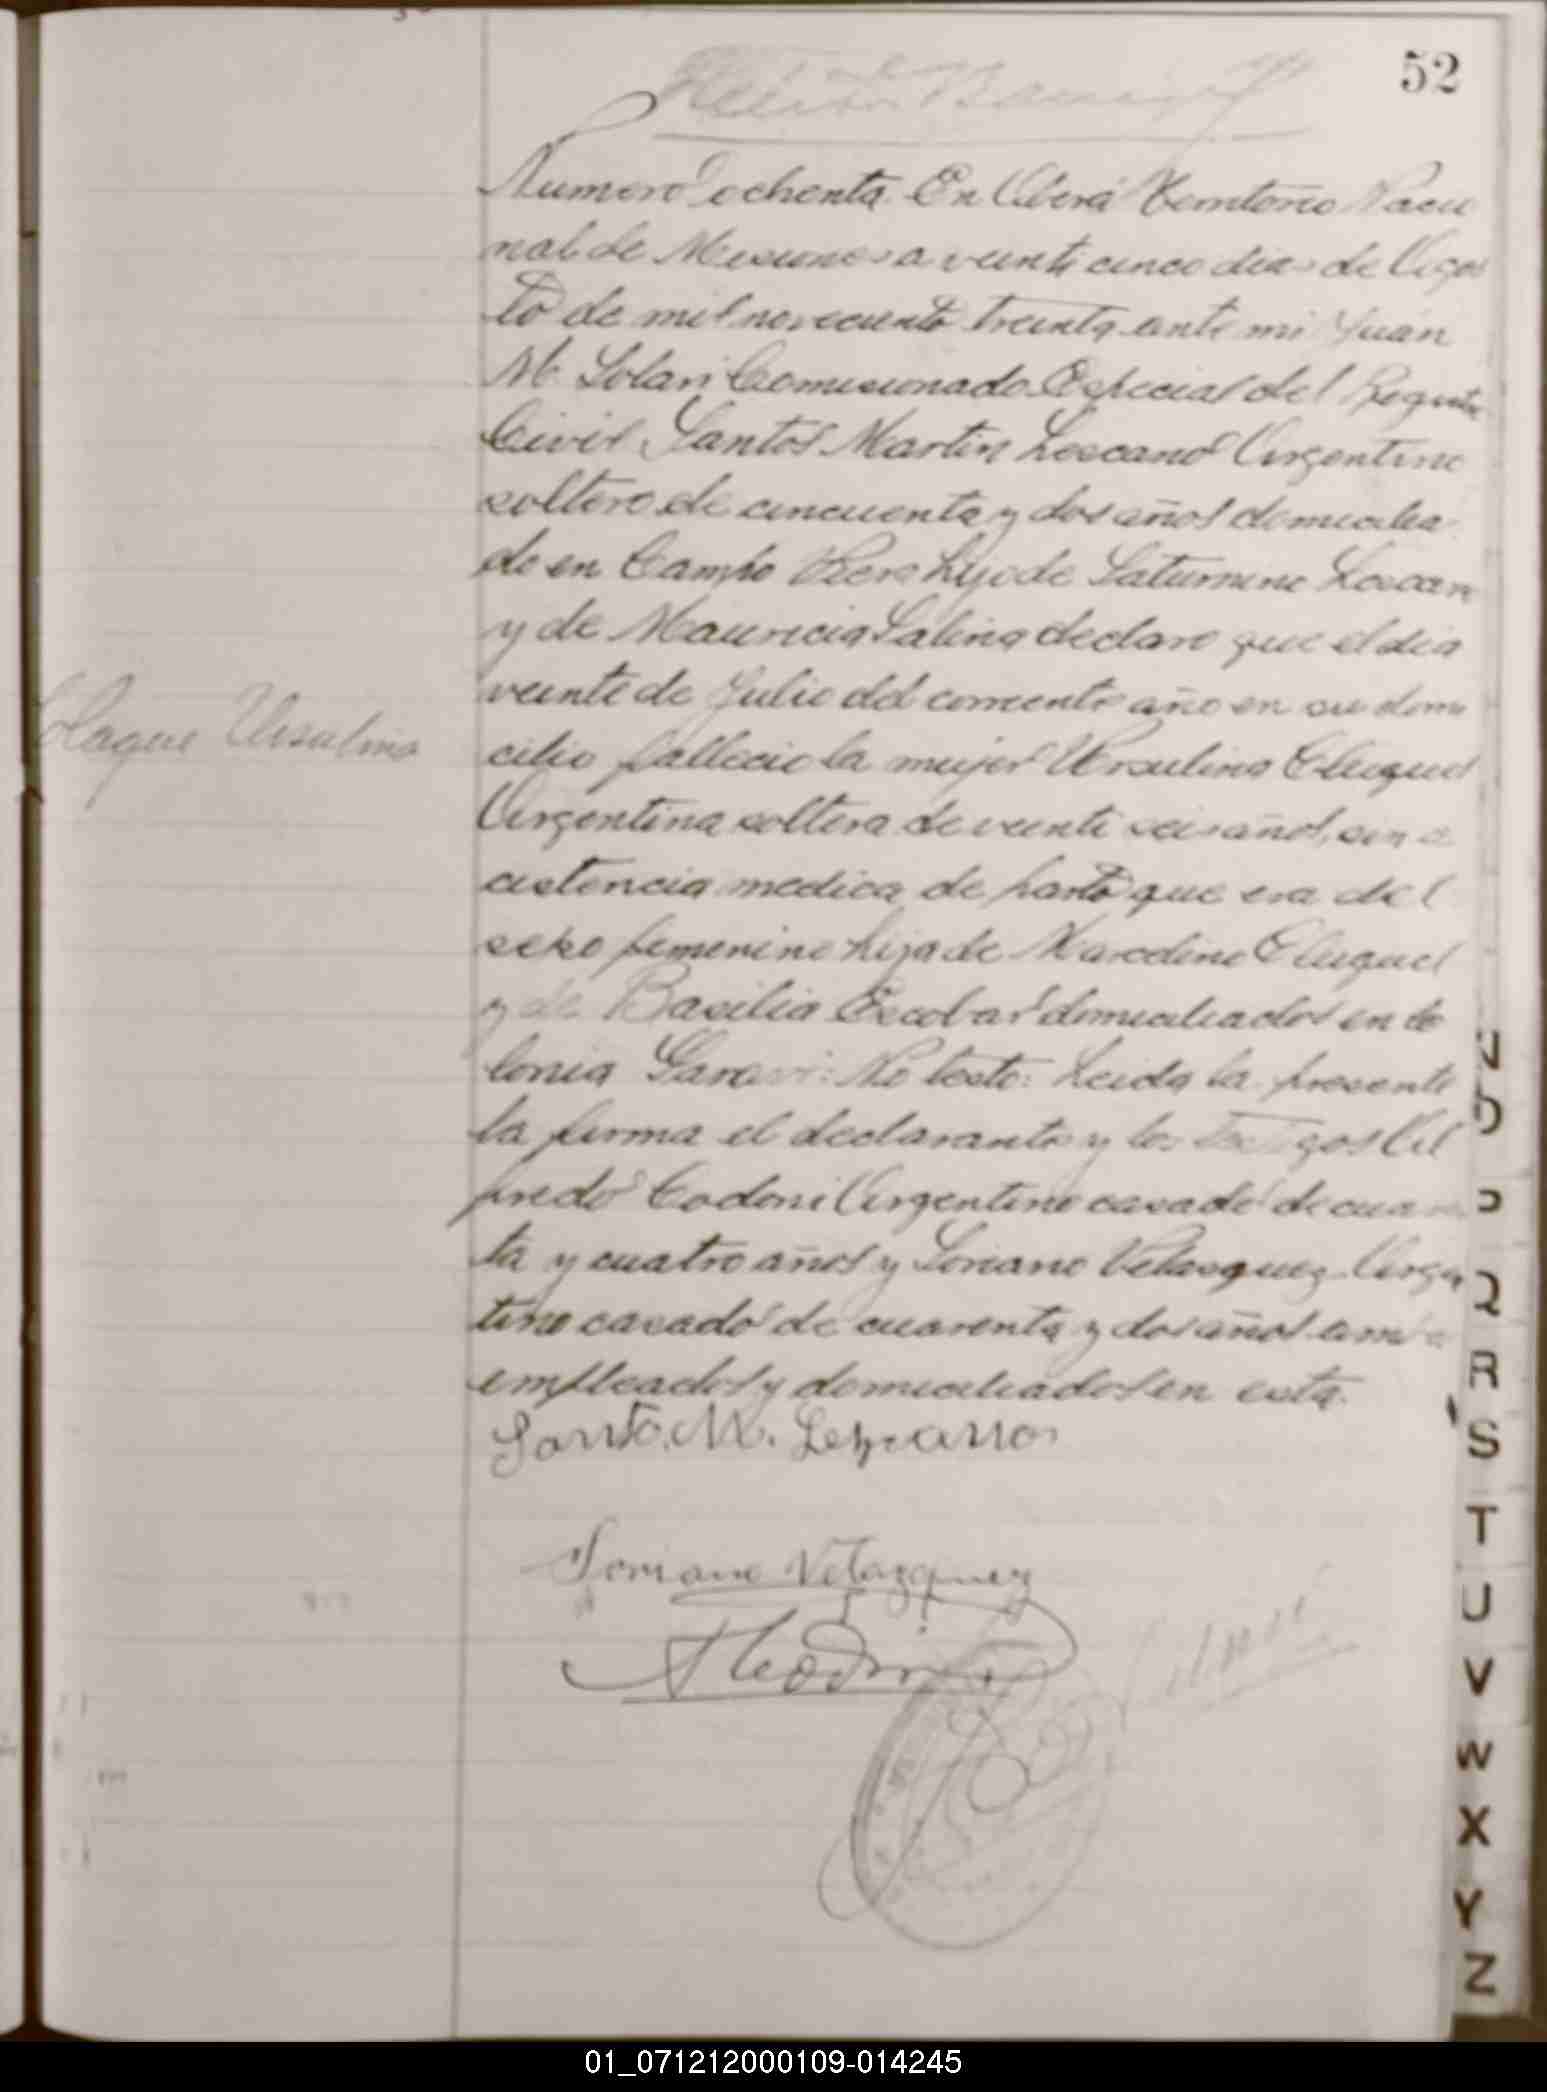 52
Numero ochenta. En Oberá Territorio Nacio
nal de Misiones a veinti cinco dias de Agos
to de mil novecientos treinta ante mi Juan
M. Solari Comisionado Especial del Registro
Civil Santos Martin Lescano Argentino
soltero de cincuenta y dos años domicilia
do en Campo Viera hijo de Saturnino Lescano
y de Mauricia Salina declaro que el dia
veinte de Julio del corriente año en su domi
Ursulina
cilio fallecio la mujer Ursulina Eluque
Argentina soltera de veinti seis años, sin a
cistencia medica de parto que era del
sexo femenino hija de Marcelino Eluque
y de Basilia Escobar domiciliados en Co
lonia Garavi: No testo: Leida la presente
la firma el declarante y los testigos Al
fredo Codoni Argentino casado de cuaren
ta y cuatro años y Soriano Velasquez Argen
tino casado de cuarenta y dos años ambos
empleados y domiciliados en esta.
Santo. M. Lescano
Soriano Velazquez
N
O
P
Q
R
S
T
U
V
W
X
Y
Z
01_071212000109-014245